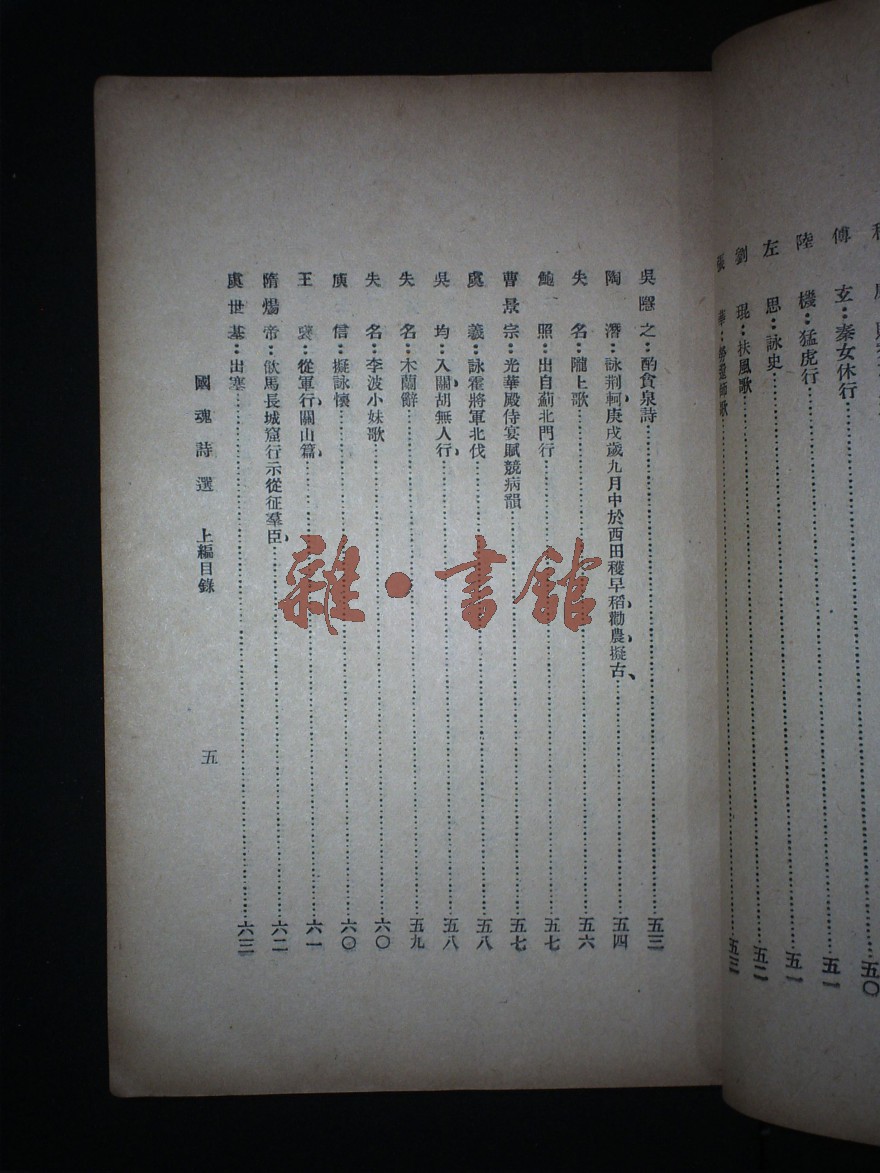 五〇
傅玄：秦女休行……五一
陸機：猛虎行……五一
左思：詠史……五二
劉琨：扶風歌
張華：勞還師歌……五三
吳隱之：酌食泉詩……五三
陶潛：詠荆軻、庚戌歲九月中於西田穫早稻、勸農、擬古、……五四
失名：隴上歌……五六
鮑照：出自薊北門行……五七
曹景宗：光華殿侍宴賦競病韻……五七
虞羲：詠霍將軍北伐……五八
吳均：入關、胡無人行、……五八
失名：木蘭辭……五九
失名：李波小妹歌……六〇
庾信：擬詠懷……六〇
王襃：從軍行、關山篇、……六一
隋煬帝：飲馬長城窟行示從征羣臣、……六二
虞世基：出塞……六三
國魂詩選　上編目錄　五
雜·書館